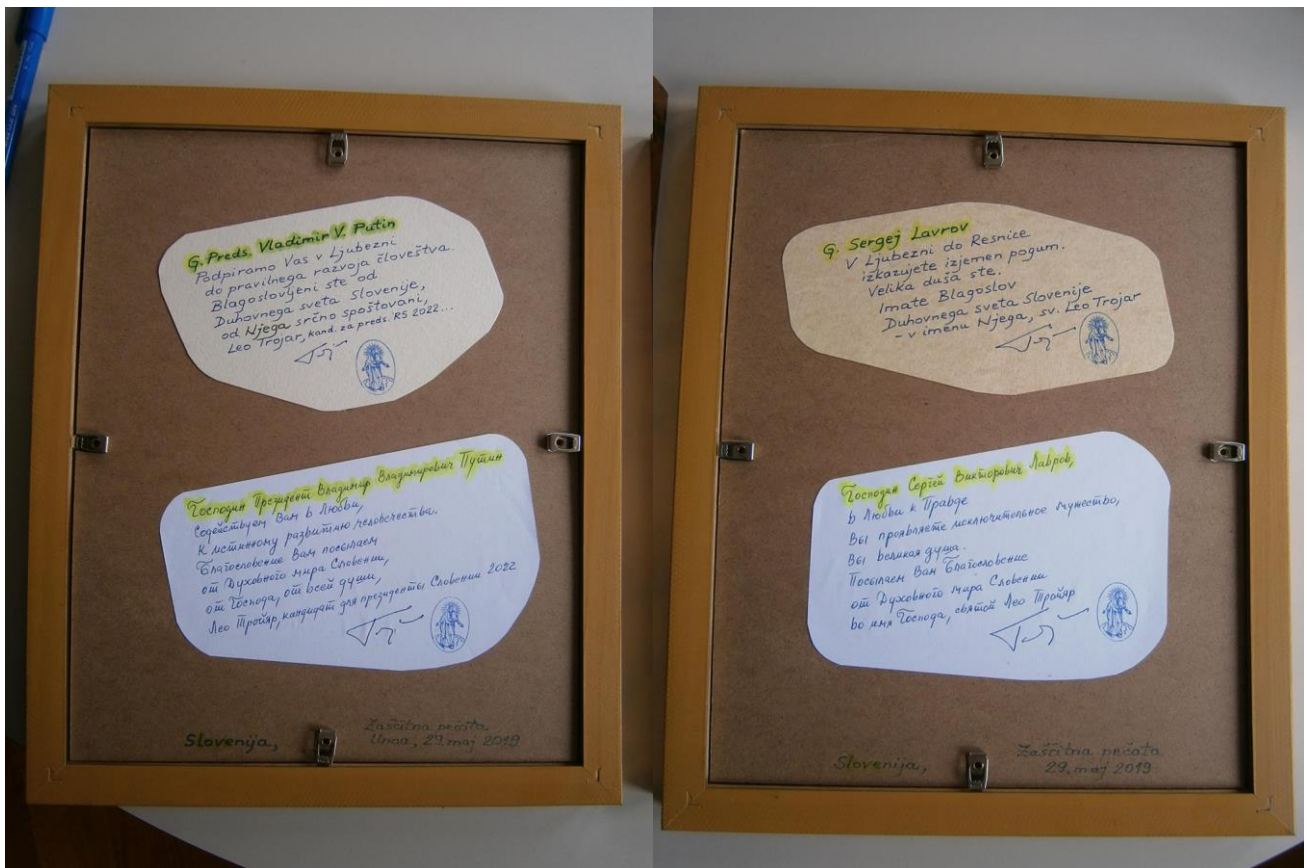 G. Preds. Vladimir V. Putin
Podpiramo Vas v Ljubezni
do pravilnega razvoja človeštva.
Blagoslovljeni ste od
Duhovnega sveta Slovenije,
od Njega srčno spoštovani,
Leo Trojar, kand. za preds. RS 2022...
Господин Президент Владимир Владимирович Путин
Содействуем Вам в Любви,
к истинному развитию человечества.
Благословение Вам посылаем
от Духовного мира Словении,
от Господа, от всей души,
Лео Тройяр, кандидат для президенты Словении 2022
Slovenija,
Zaščitna pečata
Unca, 29. maj 2019
G. Sergej Lavrov
V Ljubezni do Resnice
izkazujete izjemen pogum.
Velika duša ste.
Imate Blagoslov
Duhovnega sveta Slovenije
- v imenu Njega, sv. Leo Trojar
Господин Сергей Викторович Лавров,
в Любви к Правде
Вы проявляете исключительное мужество,
Вы великая душа.
Посылаем Вам Благословение
от Духовного мира Словении
во имя Господа, святой Лео Тройяр
Slovenija,
Zaščitna pečata
29. maj 2019